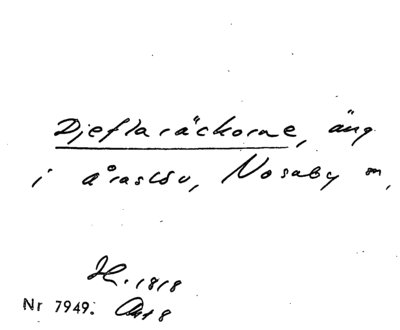 Djeflaräckorne, äng
i åraslöv, Nosaby m,
H. 1818
Nr 7949. Akt 8